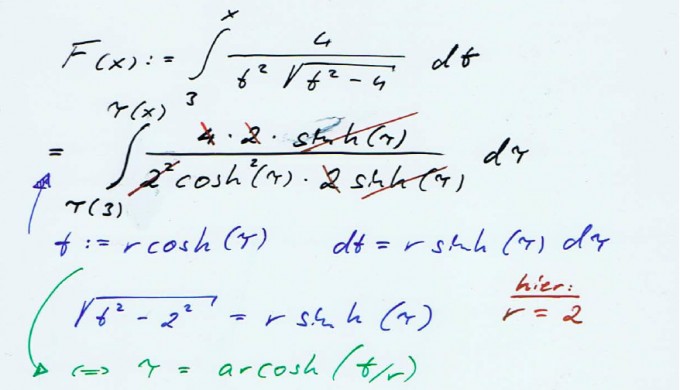 F(x) := ∫₃ˣ 4 / (t² √(t² − 4)) dt
= ∫_{τ(3)}^{τ(x)} 4 · 2 · sinh(τ) / (2² cosh²(τ) · 2 sinh(τ)) dτ
t := r cosh(τ) dt = r sinh(τ) dτ
√(t² − 2²) = r sinh(τ) hier: r = 2
⟺ τ = arcosh(t/r)